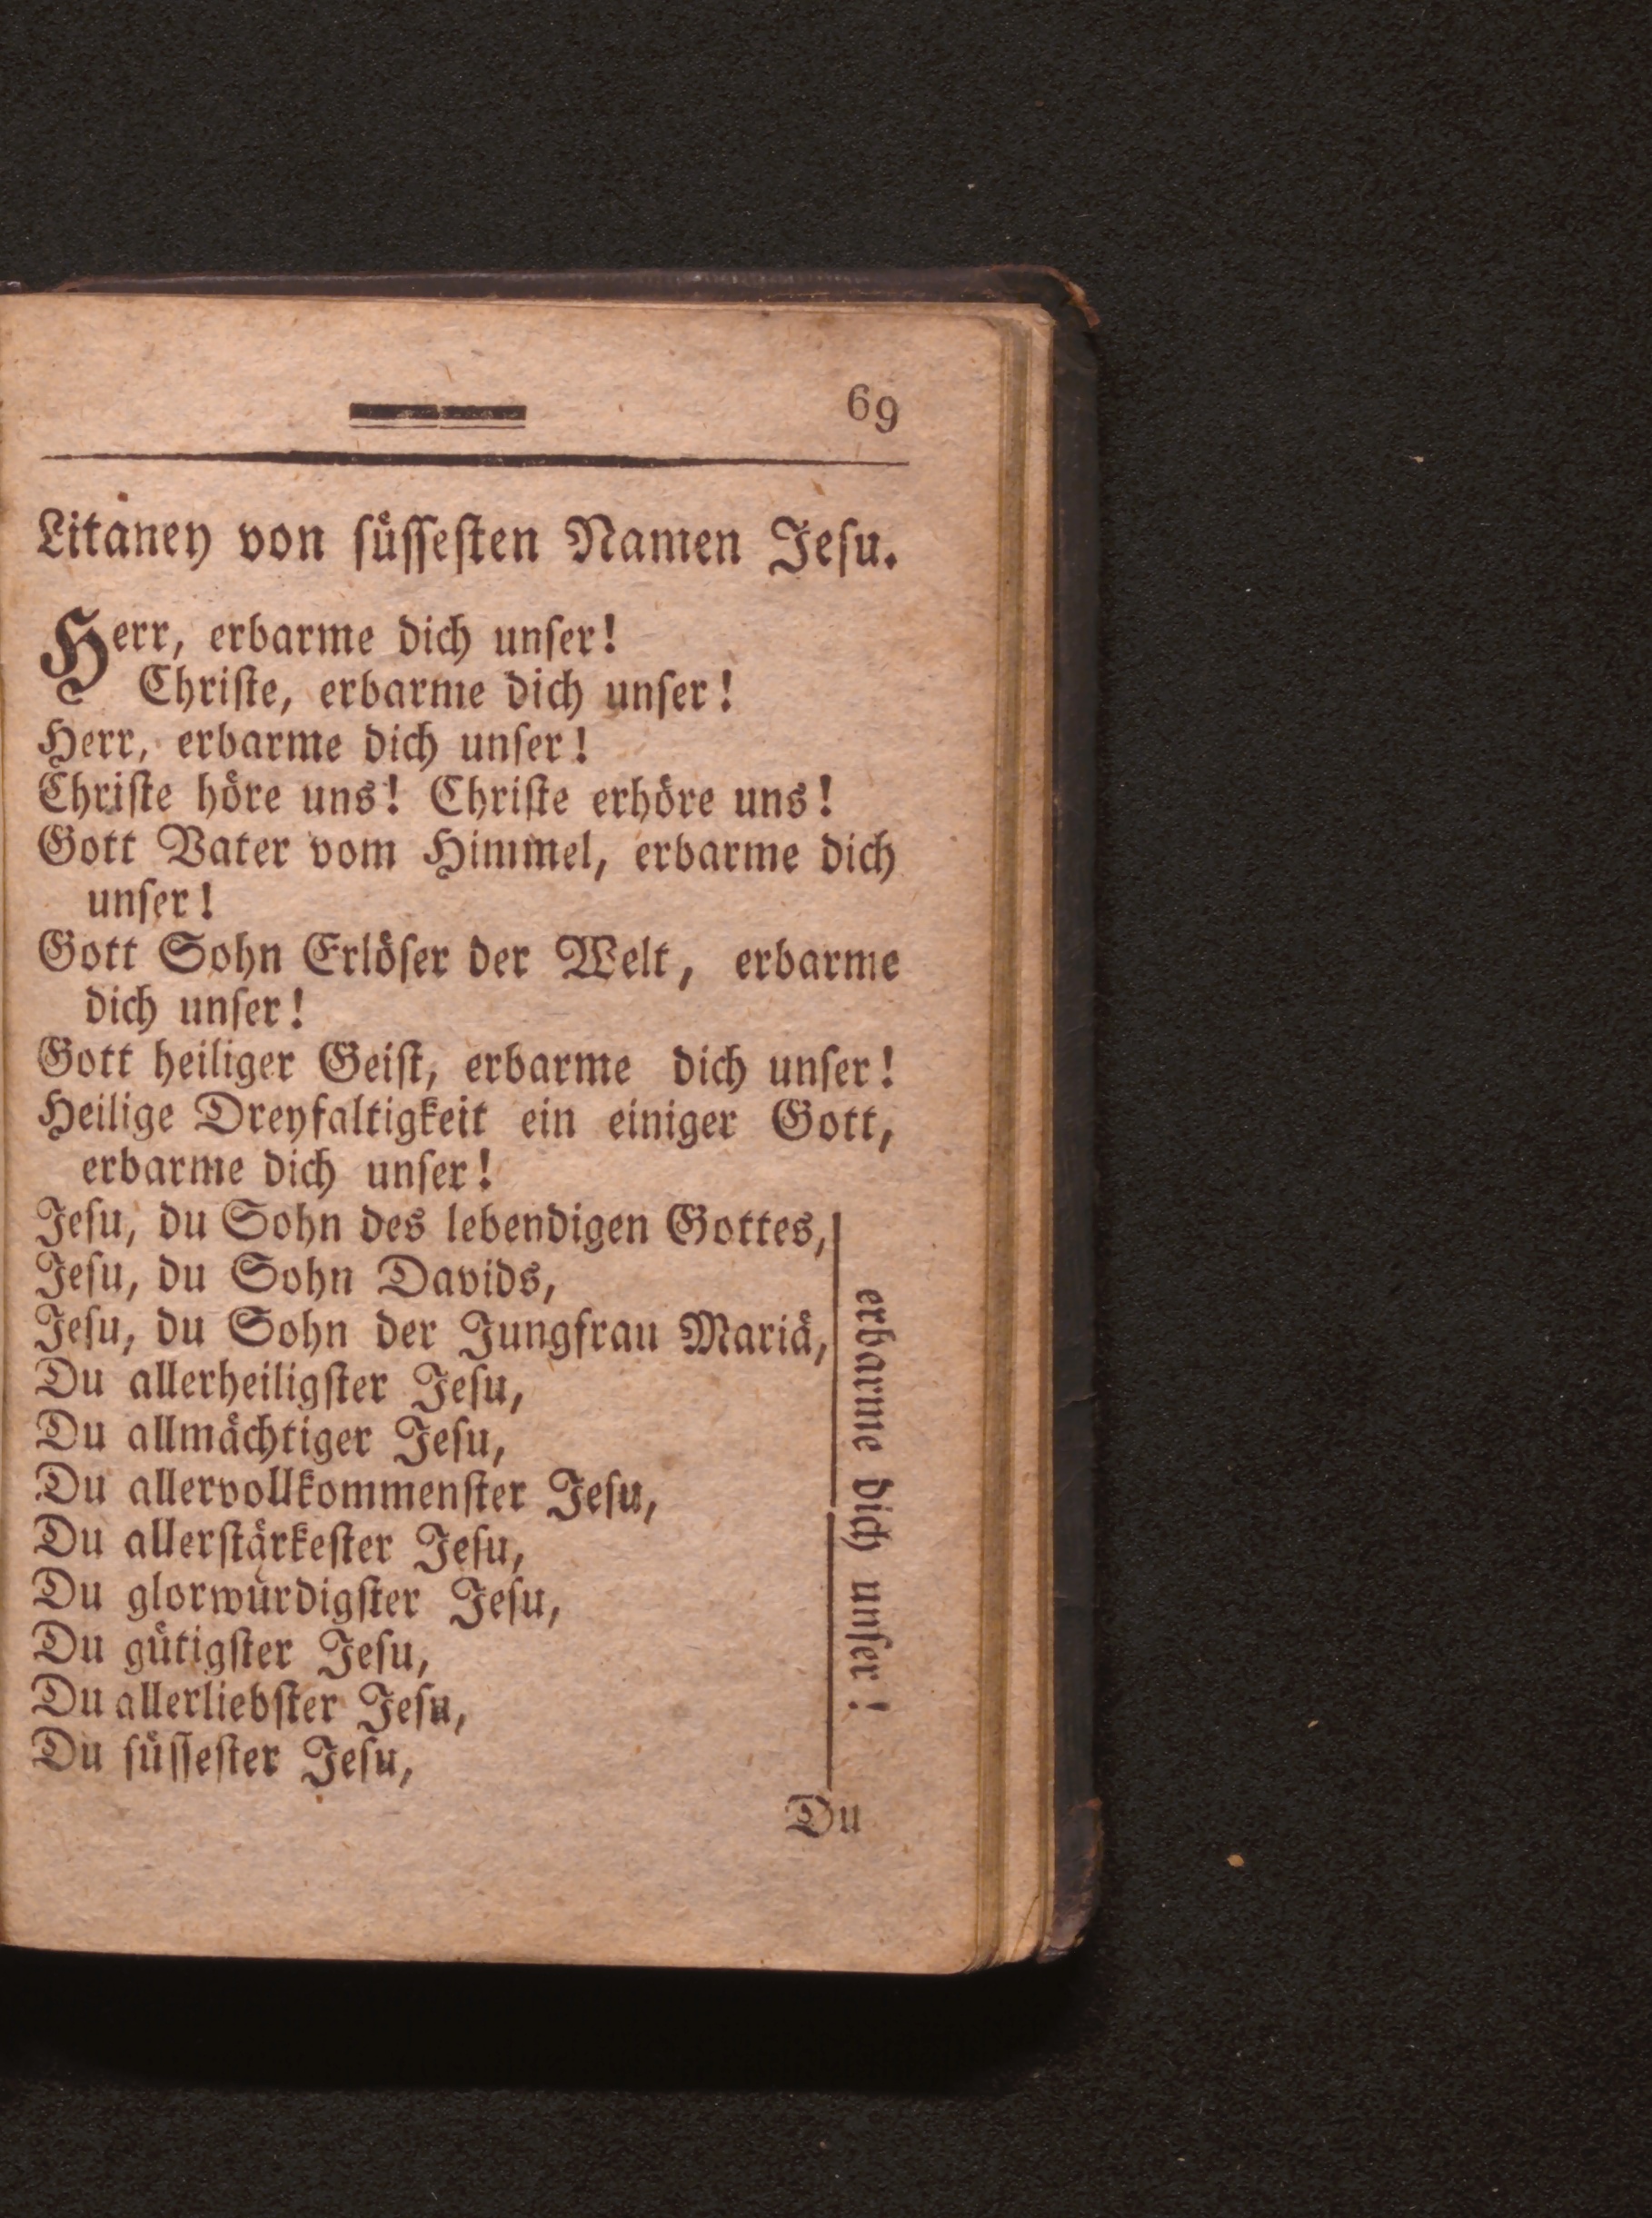 69
Litaney von süssesten Namen Jesu.
Herr, erbarme dich unser!
Christe, erbarme dich unser!
Herr, erbarme dich unser!
Christe höre uns! Christe erhöre uns!
Gott Vater vom Himmel, erbarme dich
unser!
Gott Sohn Erlöser der Welt, erbarme
dich unser!
Gott heiliger Geist, erbarme dich unser!
Heilige Dreyfaltigkeit ein einiger Gott,
erbarme dich unser!
Jesu, du Sohn des lebendigen Gottes,
Jesu, du Sohn Davids,
Jesu, du Sohn der Jungfrau Mariä,
Du allerheiligster Jesu,
Du allmächtiger Jesu,
Du allervollkommenster Jesu,
Du allerstärkester Jesu,
Du glorwürdigster Jesu,
Du gütigster Jesu,
Du allerliebster Jesu,
Du süssester Jesu,
erbarme dich unser!
Du